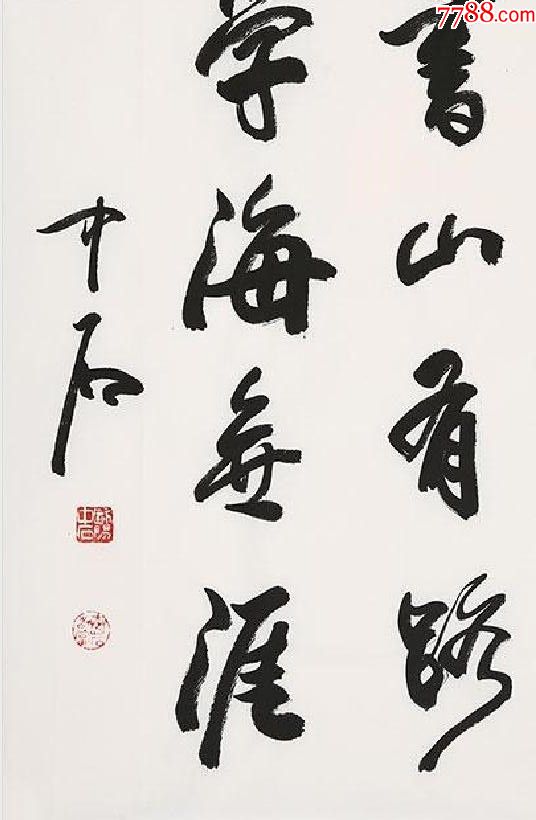 7788.com
書山有路
学海無涯
中石